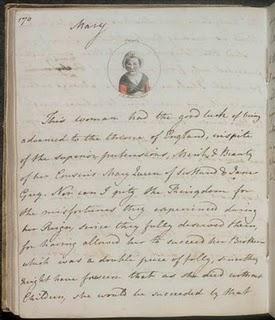 170
Mary
This woman had the good luck of being
advanced to the throne of England, inspite
of the superior pretensions, Merit, & Beauty
of her Cousins Mary Queen of Scotland & Jane
Grey. Nor can I pity the Kingdom for
the misfortunes they experienced during
her Reign, since they fully deserved them,
for having allowed her to succeed her Brother
which was a double peice of folly, since they
might have foreseen that as she died without
Children, she would be succeeded by that